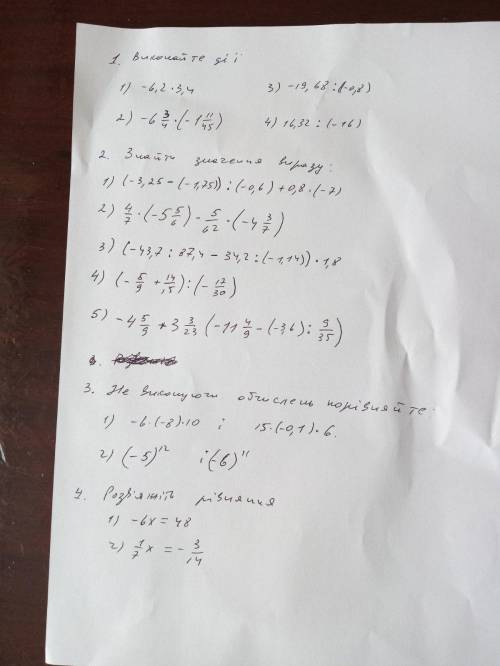 1. Виконайте дії
1) -6,2·3,4 3) -19,68:(-0,8)
2) -6 3/4 · (-1 11/45) 4) 16,32 : (-16)
2. Знайти значення виразу:
1) (-3,25-(-1,75)):(-0,6)+0,8·(-7)
2) 4/7 · (-5 5/6) - 5/62 · (-4 3/7)
3) (-43,7 : 87,4 - 34,2 : (-1,14)) · 1,8
4) (- 5/9 + 14/15) : (- 17/30)
5) -4 5/9 + 3 3/23 (-11 4/9 - (-3,6) : 9/35)
3. Не виконуючи обчислень порівняйте
1) -6·(-8)·10 і 15·(-0,1)·6.
2) (-5)¹² і (-6)¹¹
4. Розв'яжіть рівняння
1) -6x = 48
2) 1/7 x = - 3/14